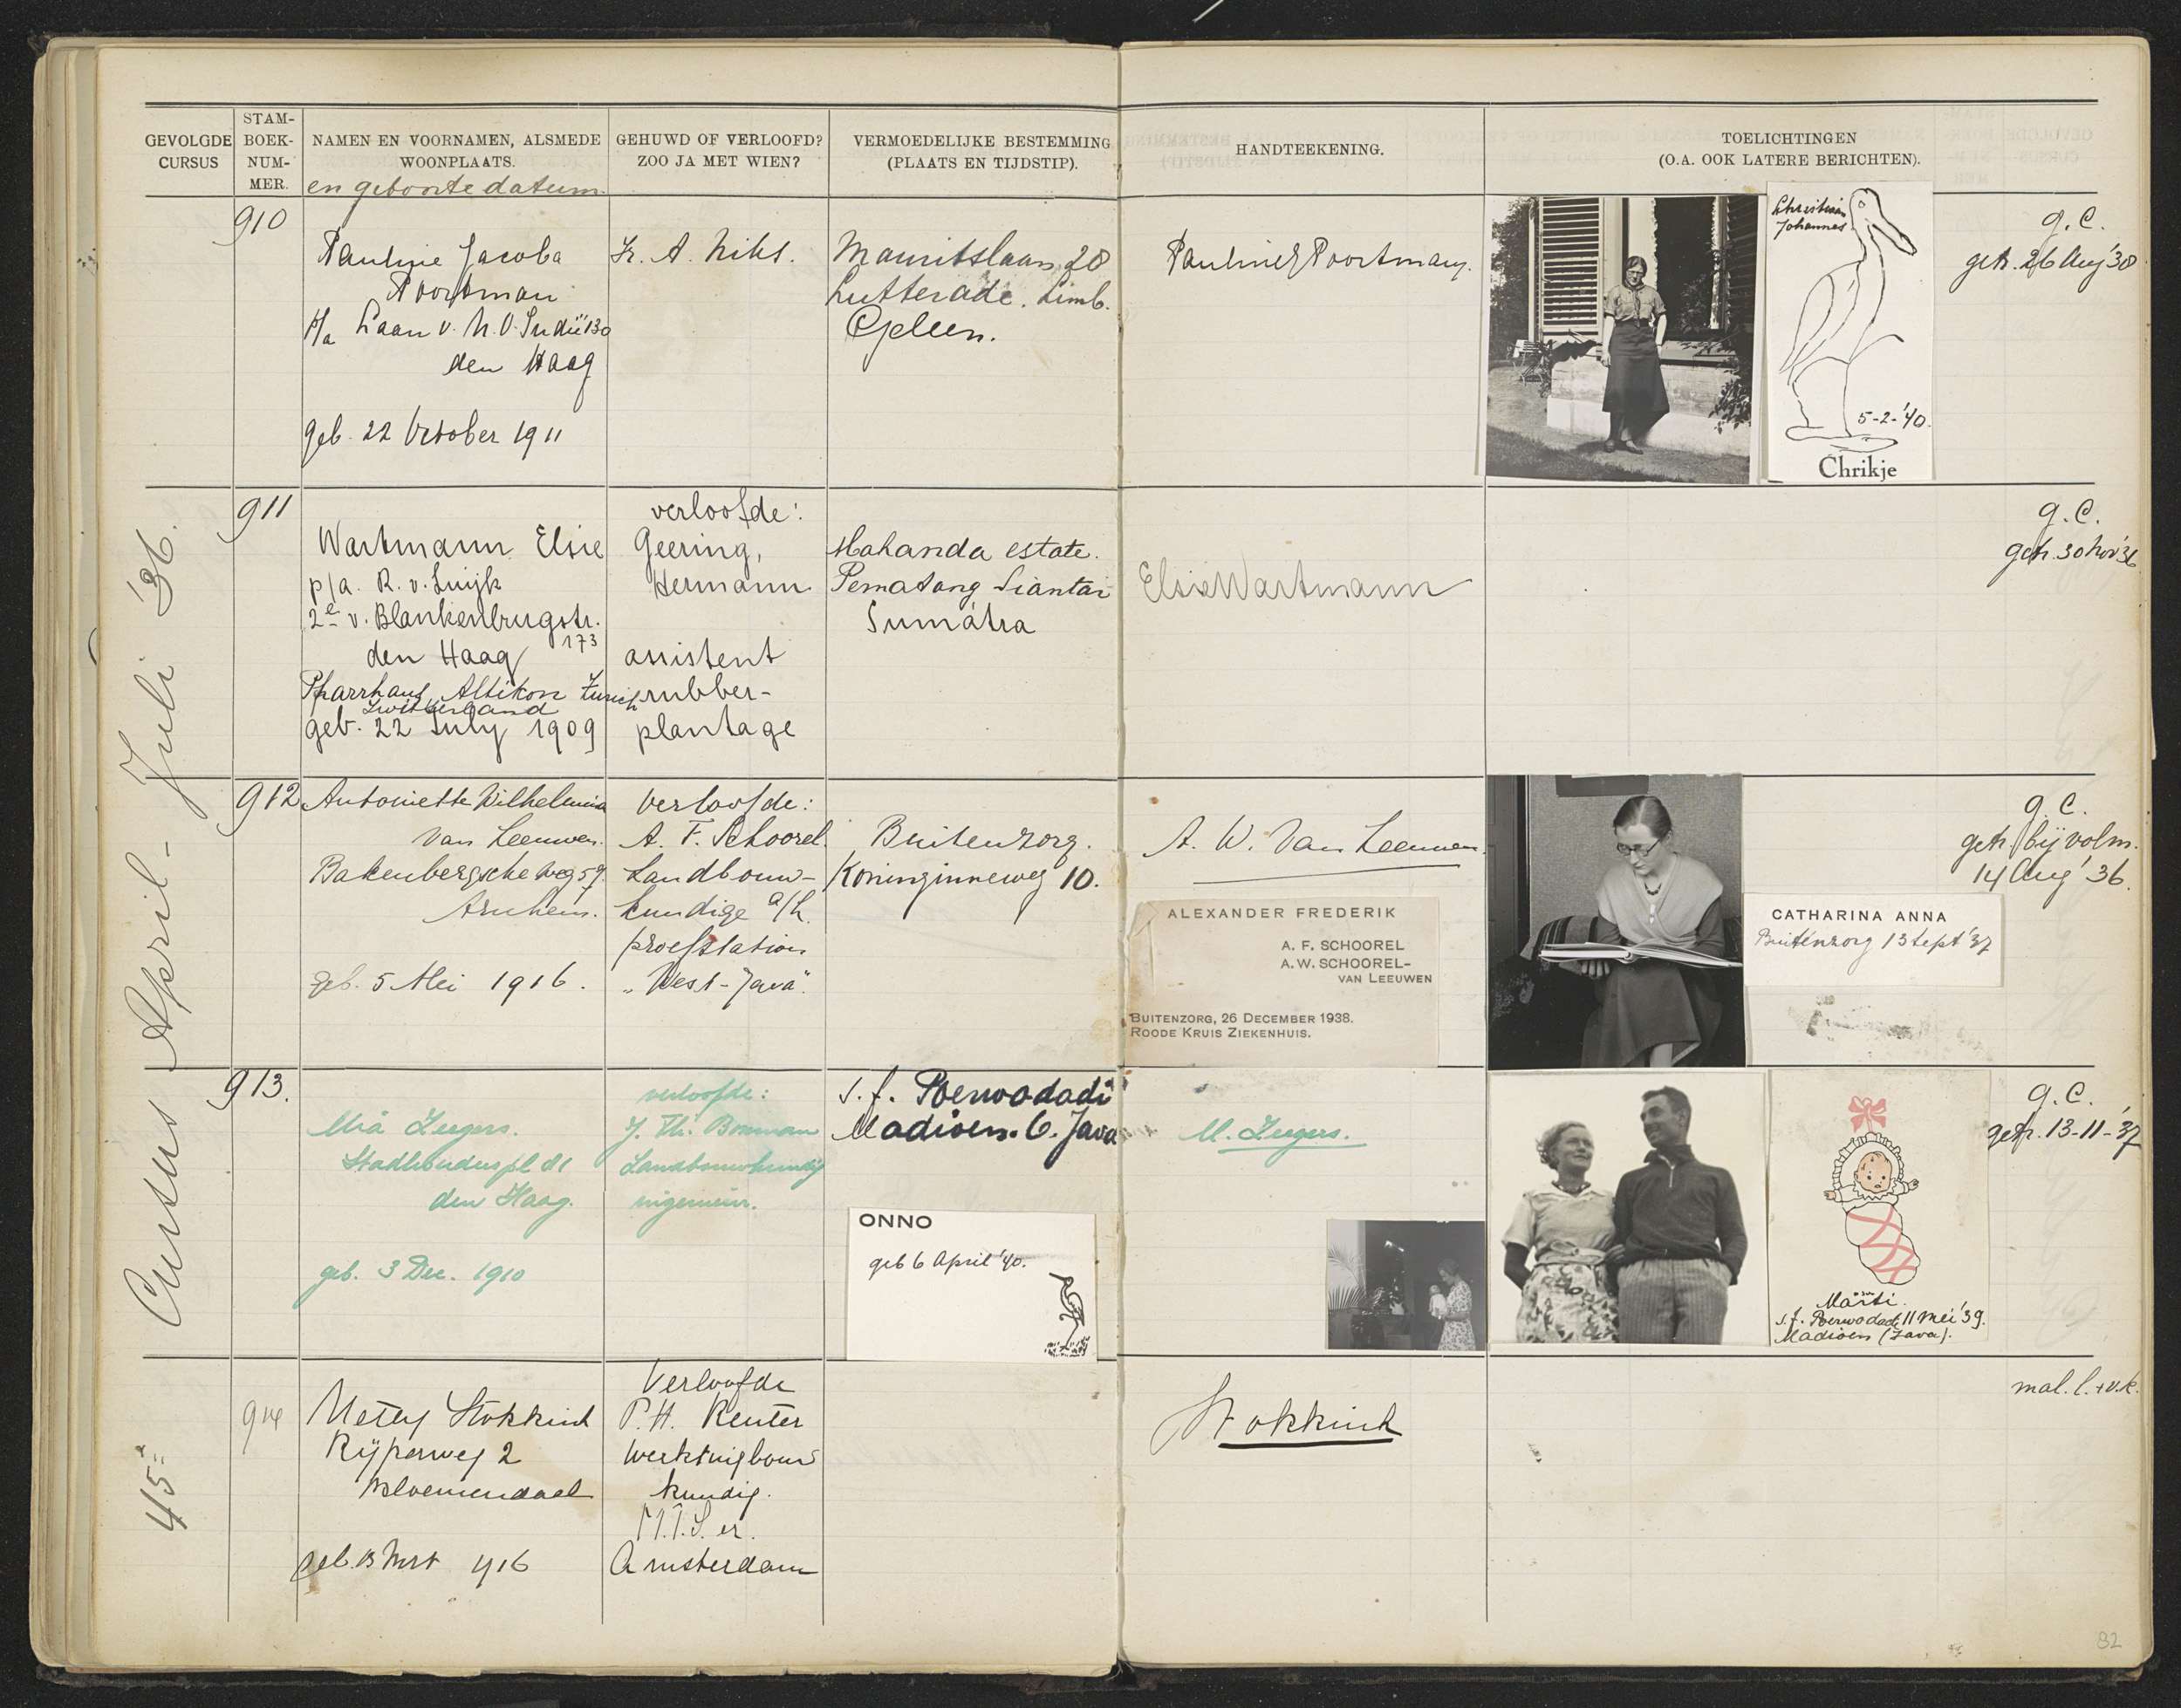 GEVOLGDE
CURSUS
STAM-
BOEK-
NUM-
MER.
NAMEN EN VOORNAMEN, ALSMEDE
WOONPLAATS.
en geboorte datum.
GEHUWD OF VERLOOFD?
ZOO JA MET WIEN?
VERMOEDELIJKE BESTEMMING
(PLAATS EN TIJDSTIP).
HANDTEEKENING.
TOELICHTINGEN
(O.A. OOK LATERE BERICHTEN).
45e Cursus April - Juli '36.
910
Pauline Jacoba
Poortman
H/a Laan v. N.O. Indië 130
den Haag
geb. 22 October 1911
Ir. A. Niks.
Mauritslaan 20
Lutterade. Limb.
Geleen.
Pauline J Poortman.
Christiaan
Johannes
5-2-'40.
Chrikje
g.C.
getr. 26 Aug '38
911
Wartmann Elsie
p/a. R. v. Luijk
2e v. Blankenburgstr.
173
den Haag
Pfarrhaus Altikon Zurich
Zwitserland
geb. 22 July 1909
verloofde:
Geering,
Hermann
assistent
rubber-
plantage
Mahanda estate.
Pematang Siantar
Sumatra
Elsie Wartmann
g.C.
getr. 30 Nov '36
912
Antoinette Wilhelmina
van Leeuwen.
Bakenbergscheweg 59.
Arnhem.
geb. 5 Mei 1916.
Verloofde:
A. F. Schoorel.
Landbouw-
kundige a/h.
proefstation
„West-Java".
Buitenzorg.
Koninginneweg 10.
A. W. van Leeuwen.
ALEXANDER FREDERIK
A. F. SCHOOREL
A. W. SCHOOREL-
VAN LEEUWEN
BUITENZORG, 26 DECEMBER 1938.
ROODE KRUIS ZIEKENHUIS.
g.C.
getr. bij volm.
14 Aug '36.
CATHARINA ANNA
Buitenzorg 13 Sept '37
913.
Mia Zeegers.
Stadhouderspl 81
den Haag.
geb. 3 Dec. 1910
verloofde:
J. Th. Bouman
Landbouwkundig
ingenieur.
s.f. Poerwodadi
Madioen. O. Java
ONNO
geb 6 April '40.
M. Zeegers.
Marti.
s.f. Poerwodadi 11 mei '39.
Madioen (Java).
g.C.
getr. 13-11-'37
914
Metey Stokkink
Rijperweg 2
Bloemendaal
geb. 13 Mrt 1916
Verloofde
P.H. Reuter
werktuigbouw
kundig.
M.T.S. er.
Amsterdam
Stokkink
mal. l. + v.k.
82